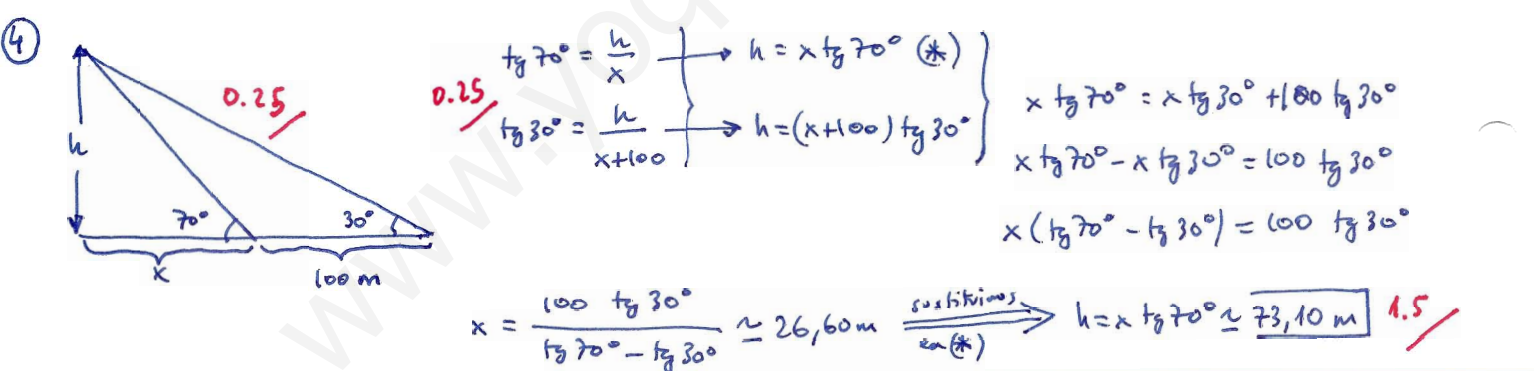 4
h
0.25
70°
30°
x
100 m
0.25
tg 70° = h/x → h = x tg 70° (*)
tg 30° = h/(x+100) → h = (x+100) tg 30°
x tg 70° = x tg 30° + 100 tg 30°
x tg 70° - x tg 30° = 100 tg 30°
x (tg 70° - tg 30°) = 100 tg 30°
x = 100 tg 30° / (tg 70° - tg 30°) ≃ 26,60 m sustituimos en (*) ⇒ h = x tg 70° ≃ 73,10 m 1.5